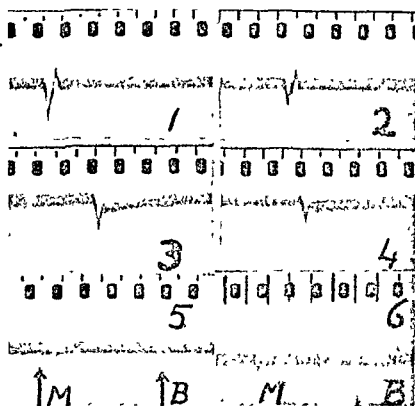 1 2
3 4
5 6
M B M B